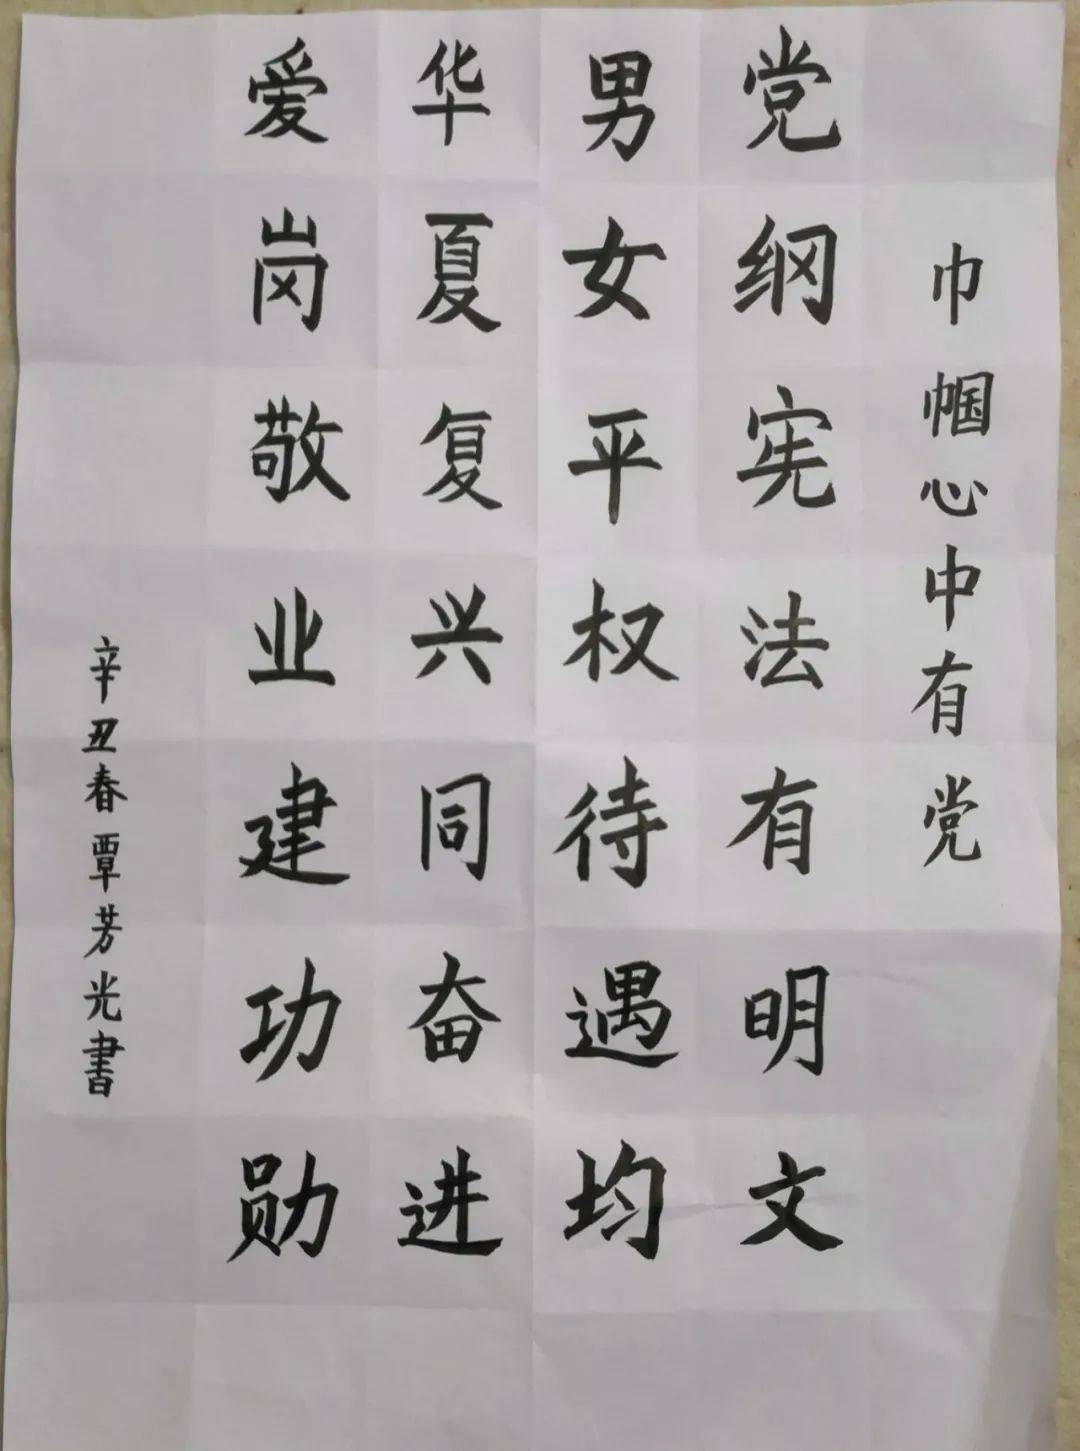 巾帼心中有党
党纲宪法有明文
男女平权待遇均
华夏复兴同奋进
爱岗敬业建功勋
辛丑春覃芳光書